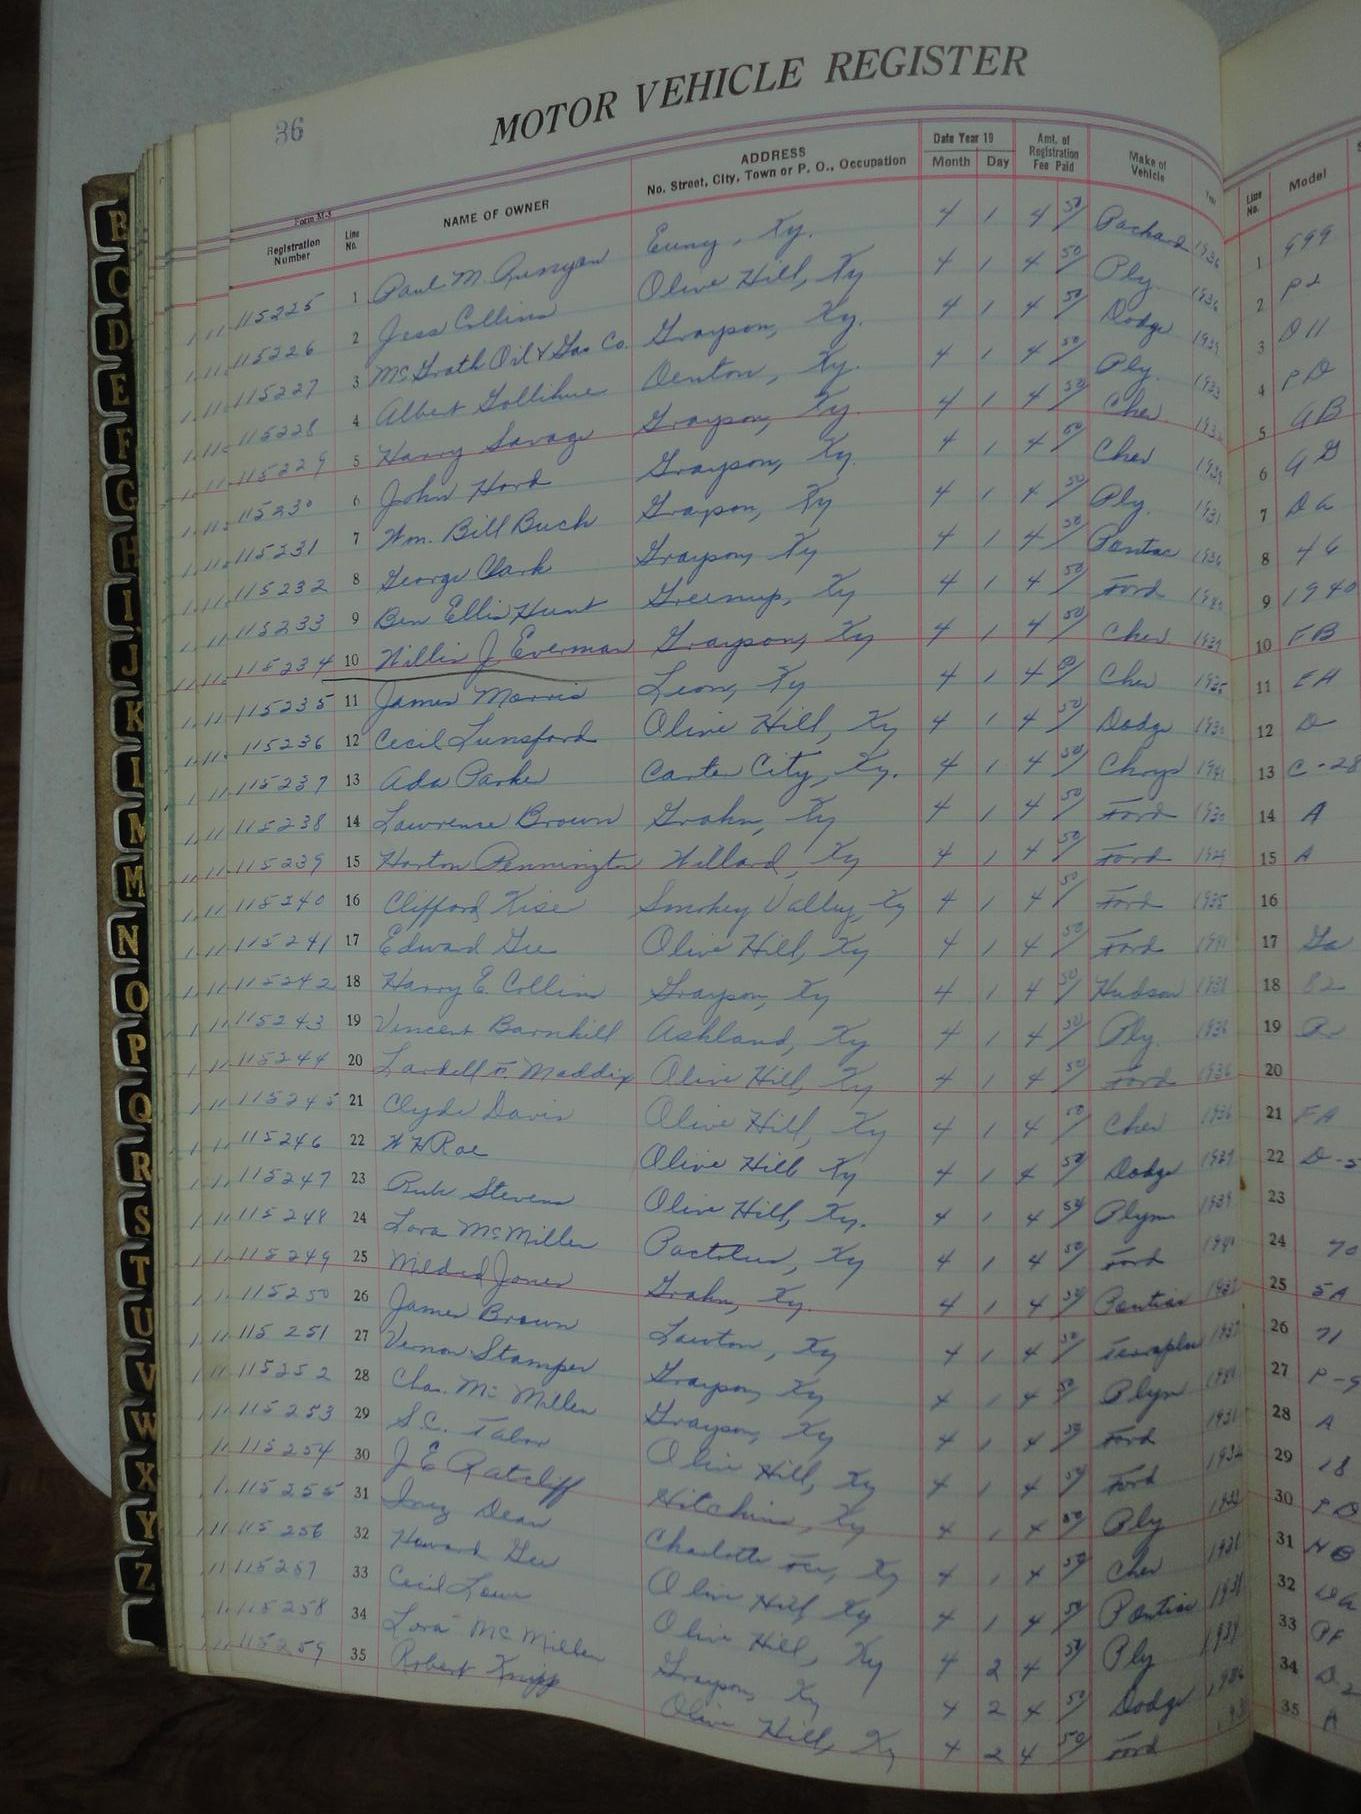 36
MOTOR VEHICLE REGISTER
Form M-3
Registration Number Line No. NAME OF OWNER ADDRESS No. Street, City, Town or P. O., Occupation Date Year 19 Month Day Amt. of Registration Fee Paid Make of Vehicle Year Line No. Model
115225 1 Paul M. Runyon Ky. 4 1 4 50 Packard 1936 1
115226 2 Jess Collins Olive Hill, Ky 4 1 4 50 Ply. 1936 2 P2
115227 3 McGrath Oil & Gas Co. Grayson, Ky. 4 1 4 50 Dodge 1939 3 D11
115228 4 Albert Gollihue Denton, Ky. 4 1 4 50 Ply. 1933 4 PD
115229 5 Harry Savage Grayson, Ky. 4 1 4 50 Chev 5
115230 6 John Hord Grayson, Ky. 4 1 4 50 Chev 1939 6
115231 7 Wm. Bill Buck Grayson, Ky 4 1 4 50 Ply. 1931 7
115232 8 George Clark Grayson, Ky 4 1 4 50 Pontiac 1936 8
115233 9 Ben Ellis Hunt Greenup, Ky 4 1 4 50 Ford 1940 9 1940
115234 10 Willis J. Everman Grayson, Ky 4 1 4 50 Chev 1937 10
115235 11 James Morris Leon, Ky 4 1 4 50 Chev 1935 11 EA
115236 12 Cecil Lunsford Olive Hill, Ky 4 1 4 50 Dodge 12 D
115237 13 Ada Parker Carter City, Ky. 4 1 4 50 Chrys 1941 13 C-28
115238 14 Lawrense Brown Grahn, Ky 4 1 4 50 Ford 1930 14 A
115239 15 Horton Pennington Willard, Ky 4 1 4 50 Ford 1929 15 A
115240 16 Clifford Kise Smokey Valley, Ky 4 1 4 50 Ford 1935 16
115241 17 Edward Gee Olive Hill, Ky 4 1 4 50 Ford 1941 17 Ga
115242 18 Harry E. Collins Grayson, Ky 4 1 4 50 Hudson 1938 18 82
115243 19 Vincent Barnhill Ashland, Ky 4 1 4 50 Ply. 1936 19
115244 20 Lardell F. Maddix Olive Hill, Ky 4 1 4 50 Ford 1936 20
115245 21 Clyde Davis Olive Hill, Ky 4 1 4 50 Chev 1936 21 FA
115246 22 W H Roe Olive Hill Ky 4 1 4 50 Dodge 1937 22 D-5
115247 23 Rube Stevens Olive Hill, Ky. 4 1 4 50 Plym 1939 23
115248 24 Lora McMillen Pactolus, Ky 4 1 4 50 Ford 24 70
115249 25 Mildred Jones Grahn, Ky. 4 1 4 50 Pontiac 1937 25 5A
115250 26 James Brown Lawton, Ky 4 1 4 50 Terraplane 1937 26 71
115251 27 Vernon Stamper Grayson, Ky 4 1 4 50 Plym 27 P-9
115252 28 Chas. McMillen Grayson, Ky 4 1 4 50 Ford 1931 28 A
115253 29 S.C. Tabor Olive Hill, Ky 4 1 4 50 Ford 1932 29 18
115254 30 J E Ratcliff Hitchins, Ky 4 1 4 50 Ply 1933 30 PD
115255 31 Inez Dean Charlotte Fce, Ky 4 1 4 50 Chev 31
115256 32 Howard Gee Olive Hill, Ky 4 1 4 50 Pontiac 32
115257 33 Cecil Lowe Olive Hill, Ky 4 2 4 50 Ply 1934 33 PF
115258 34 Lora McMillen Grayson, Ky 4 2 4 50 Dodge 1936 34 D-2
115259 35 Robert Knipp Olive Hill, Ky 4 2 4 50 Ford 35 A
B
C
D
E
F
G
H
I
J
K
L
M
M
N
O
P
Q
R
S
T
U
V
W
X
Y
Z